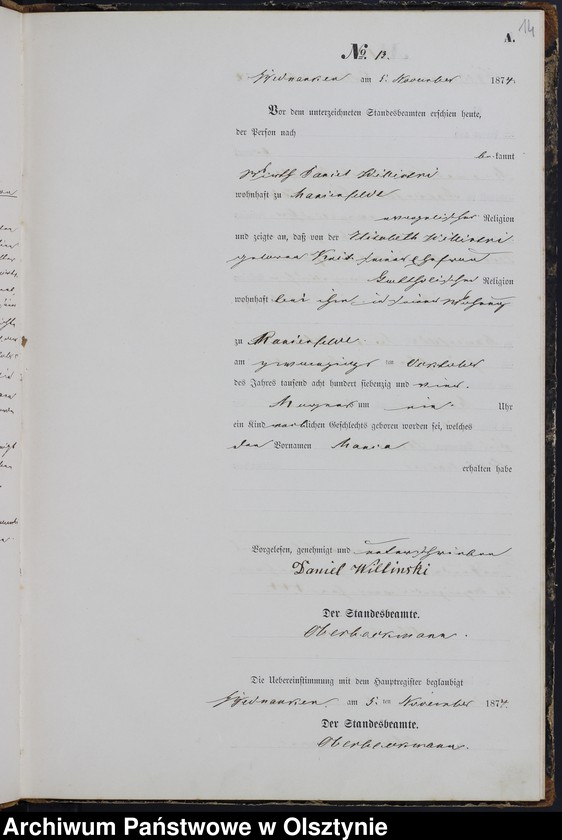 14
A.
No. 12.
am 5. November 1874.
Vor dem unterzeichneten Standesbeamten erschien heute,
der Person nach
bekannt
Wirth Daniel Willinski
wohnhaft zu Marienfelde
evangelischer Religion
und zeigte an, daß von der Elisabeth Willinski
geborene seiner Ehefrau
katholischer Religion
wohnhaft bei ihm in seiner Wohnung
zu Marienfelde
am im October
des Jahres tausend acht hundert siebenzig und vier
Morgens um ein Uhr
ein Kind weiblichen Geschlechts geboren worden sei, welches
den Vornamen Maria
erhalten habe
Vorgelesen, genehmigt und unterschrieben
Daniel Willinski
Der Standesbeamte.
Oberbeckmann.
Die Uebereinstimmung mit dem Hauptregister beglaubigt
am 5. ten November 1874.
Der Standesbeamte.
Oberbeckmann.
Archiwum Państwowe w Olsztynie